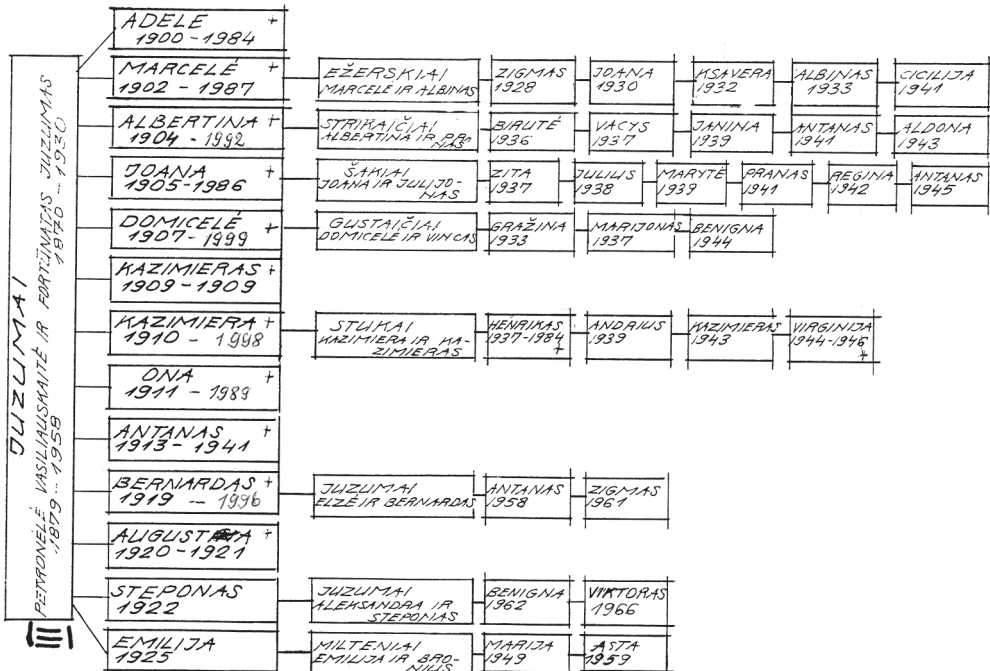 JUZUMAI
PETRONĖLĖ VASILIAUSKAITĖ IR FORTŪNATAS JUZUMAS
1879 - 1958 1870 - 1930
III
ADELĖ +
1900 - 1984
MARCELĖ +
1902 - 1987
EŽERSKIAI
MARCELĖ IR ALBINAS
ZIGMAS
1928
JOANA
1930
KSAVERA
1932
ALBINAS
1933
CICILIJA
1941
ALBERTINA +
1904 - 1992
STRIKAIČIAI
ALBERTINA IR PRA-
NAS
BIRUTĖ
1936
VACYS
1937
JANINA
1939
ANTANAS
1941
ALDONA
1943
JOANA +
1905-1986
ŠAKIAI
JOANA IR JULIJO-
NAS
ZITA
1937
JULIUS
1938
MARYTĖ
1939
PRANAS
1941
REGINA
1942
ANTANAS
1945
DOMICELĖ +
1907 - 1999
GUSTAIČIAI
DOMICELĖ IR VINCAS
GRAŽINA
1933
MARIJONAS
1937
BENIGNA
1944
KAZIMIERAS +
1909 - 1909
KAZIMIERA +
1910 - 1998
STUKAI
KAZIMIERA IR KA-
ZIMIERAS
HENRIKAS
1937-1984
+
ANDRIUS
1939
KAZIMIERAS
1943
VIRGINIJA
1944-1946
+
ONA +
1911 - 1989
ANTANAS +
1913 - 1941
BERNARDAS +
1919 - 1996
JUZUMAI
ELZĖ IR BERNARDAS
ANTANAS
1958
ZIGMAS
1961
+
1920 - 1921
STEPONAS
1922
JUZUMAI
ALEKSANDRA IR
STEPONAS
BENIGNA
1962
VIKTORAS
1966
EMILIJA
1925
MILTENIAI
EMILIJA IR BRO-
NIUS
MARIJA
1949
ASTA
1959